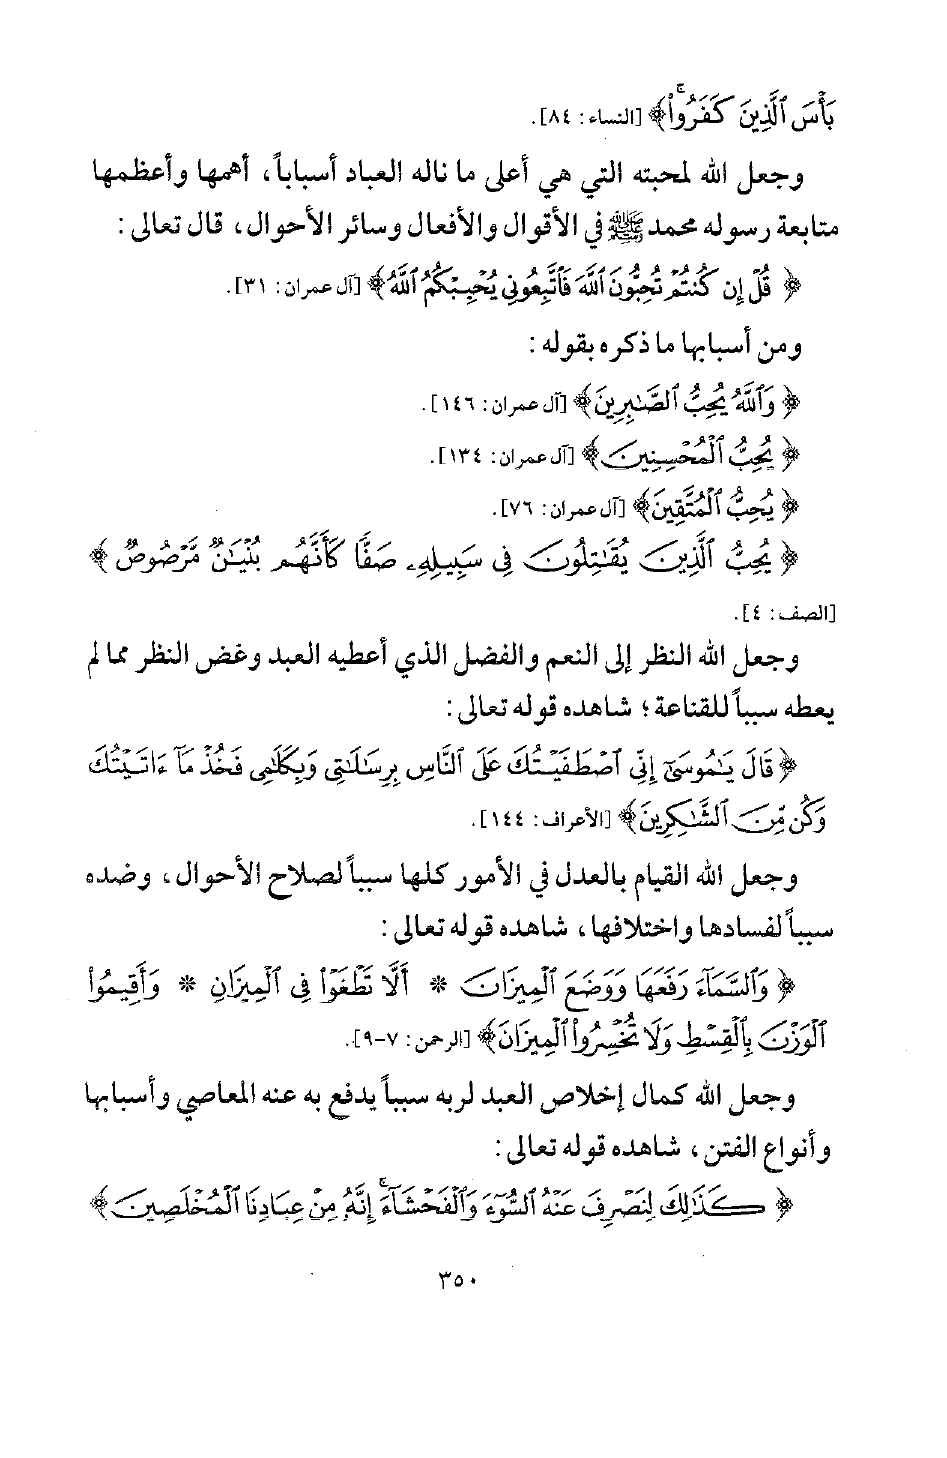 بَأْسَ ٱلَّذِينَ كَفَرُوا۟ۚ﴾ [النساء: ٨٤].
وجعل الله لمحبته التي هي أعلى ما ناله العباد أسباباً، أهمها وأعظمها
متابعة رسوله محمد ﷺ في الأقوال والأفعال وسائر الأحوال، قال تعالى:
﴿ قُلْ إِن كُنتُمْ تُحِبُّونَ ٱللَّهَ فَٱتَّبِعُونِى يُحْبِبْكُمُ ٱللَّهُ﴾ [آل عمران: ٣١].
ومن أسبابها ما ذكره بقوله:
﴿ وَٱللَّهُ يُحِبُّ ٱلصَّٰبِرِينَ﴾ [آل عمران: ١٤٦].
﴿ يُحِبُّ ٱلْمُحْسِنِينَ﴾ [آل عمران: ١٣٤].
﴿ يُحِبُّ ٱلْمُتَّقِينَ﴾ [آل عمران: ٧٦].
﴿ يُحِبُّ ٱلَّذِينَ يُقَٰتِلُونَ فِى سَبِيلِهِۦ صَفًّا كَأَنَّهُم بُنْيَٰنٌ مَّرْصُوصٌ ﴾
[الصف: ٤].
وجعل الله النظر إلى النعم والفضل الذي أعطيه العبد وغض النظر مما لم
يعطه سبباً للقناعة؛ شاهده قوله تعالى:
﴿ قَالَ يَٰمُوسَىٰٓ إِنِّى ٱصْطَفَيْتُكَ عَلَى ٱلنَّاسِ بِرِسَٰلَٰتِى وَبِكَلَٰمِى فَخُذْ مَآ ءَاتَيْتُكَ
وَكُن مِّنَ ٱلشَّٰكِرِينَ﴾ [الأعراف: ١٤٤].
وجعل الله القيام بالعدل في الأمور كلها سبباً لصلاح الأحوال، وضده
سبباً لفسادها واختلافها، شاهده قوله تعالى:
﴿ وَٱلسَّمَآءَ رَفَعَهَا وَوَضَعَ ٱلْمِيزَانَ * أَلَّا تَطْغَوْا۟ فِى ٱلْمِيزَانِ * وَأَقِيمُوا۟
ٱلْوَزْنَ بِٱلْقِسْطِ وَلَا تُخْسِرُوا۟ ٱلْمِيزَانَ﴾ [الرحمن: ٧-٩].
وجعل الله كمال إخلاص العبد لربه سبباً يدفع به عنه المعاصي وأسبابها
وأنواع الفتن، شاهده قوله تعالى:
﴿ كَذَٰلِكَ لِنَصْرِفَ عَنْهُ ٱلسُّوٓءَ وَٱلْفَحْشَآءَۚ إِنَّهُۥ مِنْ عِبَادِنَا ٱلْمُخْلَصِينَ ﴾
٣٥٠